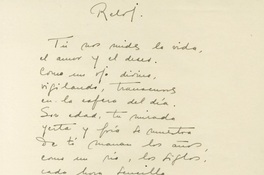 Reloj.
Tú nos mides la vida,
el amor y el deseo.
Como un ojo divino,
vigilando, transcurres
en la esfera del día.
Sin edad, tu mirada
yerta y fría se muestra
De ti manan los años,
como un río, los siglos,
cada hora sencilla